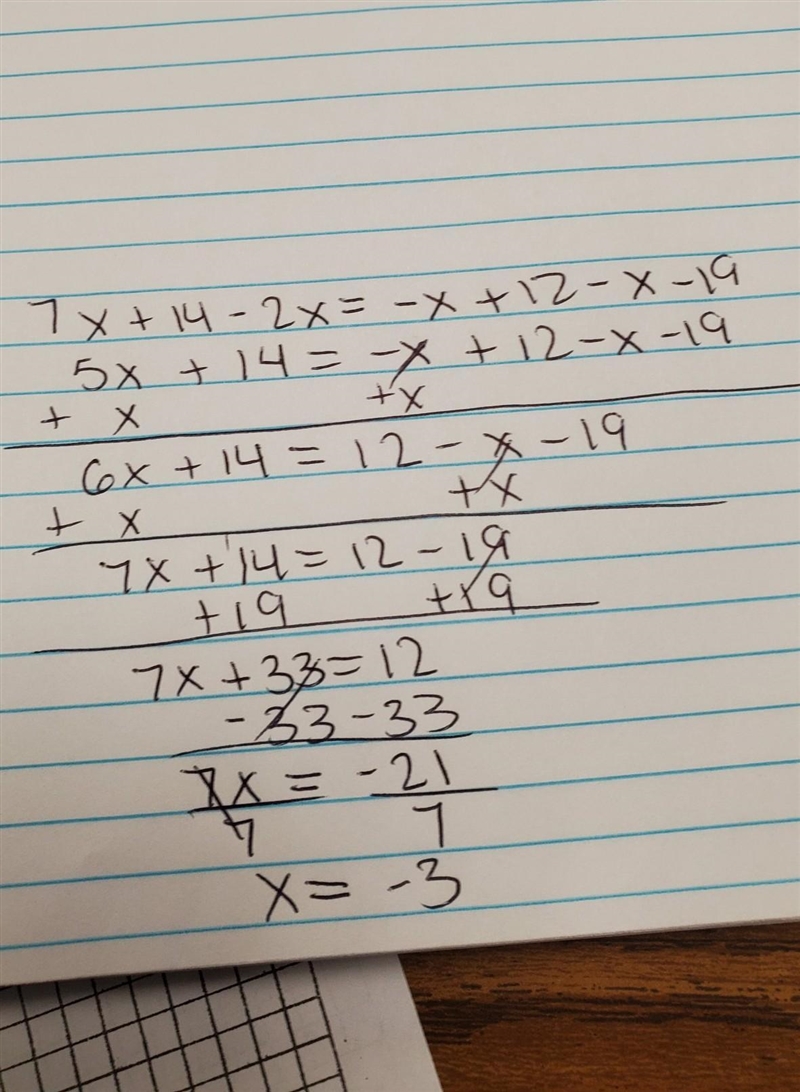 7x + 14 - 2x = -x + 12 - x - 19
5x + 14 = -x + 12 - x - 19
+ x +x
6x + 14 = 12 - x - 19
+ x +x
7x + 14 = 12 - 19
+19 +19
7x + 33 = 12
-33 -33
7x = -21
7 7
x = -3